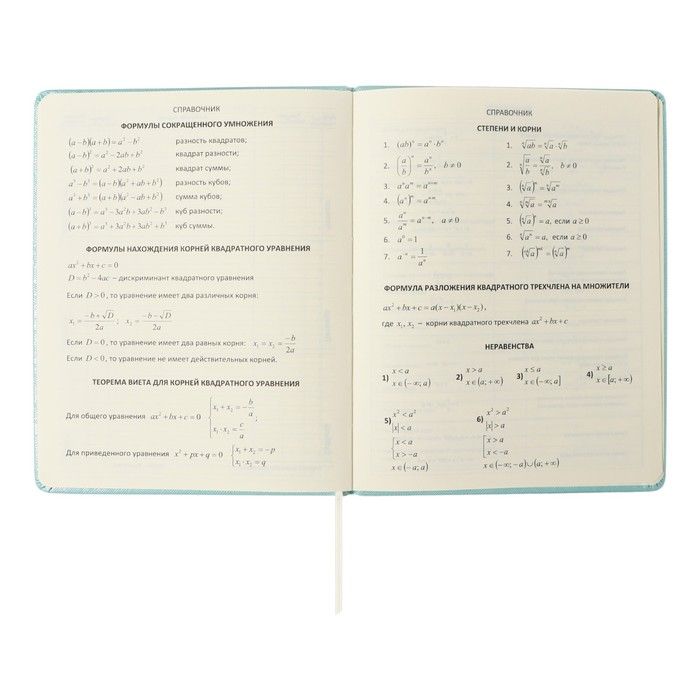 СПРАВОЧНИК
ФОРМУЛЫ СОКРАЩЕННОГО УМНОЖЕНИЯ
(a−b)(a+b)=a²−b² разность квадратов;
(a−b)²=a²−2ab+b² квадрат разности;
(a+b)²=a²+2ab+b² квадрат суммы,
a³−b³=(a−b)(a²+ab+b²) разность кубов;
a³+b³=(a+b)(a²−ab+b²) сумма кубов;
(a−b)³=a³−3a²b+3ab²−b³ куб разности;
(a+b)³=a³+3a²b+3ab²+b³ куб суммы.
ФОРМУЛЫ НАХОЖДЕНИЯ КОРНЕЙ КВАДРАТНОГО УРАВНЕНИЯ
ax²+bx+c=0
D=b²−4ac − дискриминант квадратного уравнения
Если D>0, то уравнение имеет два различных корня:
x₁=(−b+√D)/2a; x₂=(−b−√D)/2a
Если D=0, то уравнение имеет два равных корня: x₁=x₂=−b/2a
Если D<0, то уравнение не имеет действительных корней.
ТЕОРЕМА ВИЕТА ДЛЯ КОРНЕЙ КВАДРАТНОГО УРАВНЕНИЯ
Для общего уравнения ax²+bx+c=0 {x₁+x₂=−b/a
x₁·x₂=c/a;
Для приведенного уравнения x²+px+q=0 {x₁+x₂=−p
x₁·x₂=q
СПРАВОЧНИК
СТЕПЕНИ И КОРНИ
1. (ab)ⁿ=aⁿ·bⁿ
2. (a/b)ⁿ=aⁿ/bⁿ, b≠0
3. aⁿaᵐ=aⁿ⁺ᵐ
4. (aⁿ)ᵐ=aⁿ·ᵐ
5. aⁿ/aᵐ=aⁿ⁻ᵐ, a≠0
6. a⁰=1
7. a⁻ⁿ=1/aⁿ
1. ⁿ√ab=ⁿ√a·ⁿ√b
2. ⁿ√(a/b)=ⁿ√a/ⁿ√b, b≠0
3. (ⁿ√a)ᵐ=ⁿ√aᵐ
4. ⁿ√ᵐ√a=ⁿᵐ√a
5. (ⁿ√a)ⁿ=a, если a≥0
6. ⁿ√aⁿ=a, если a≥0
7.
ФОРМУЛА РАЗЛОЖЕНИЯ КВАДРАТНОГО ТРЕХЧЛЕНА НА МНОЖИТЕЛИ
ax²+bx+c=a(x−x₁)(x−x₂),
где x₁,x₂ − корни квадратного трехчлена ax²+bx+c
НЕРАВЕНСТВА
1) x<a
x∈(−∞;a)
2) x>a
x∈(a;+∞)
3) x≤a
x∈(−∞;a]
4) x≥a
x∈[a;+∞)
5) x²<a²
|x|<a
{x<a
x>−a
x∈(−a;a)
6) x²>a²
|x|>a
[x>a
x<−a
x∈(−∞;−a)∪(a;+∞)